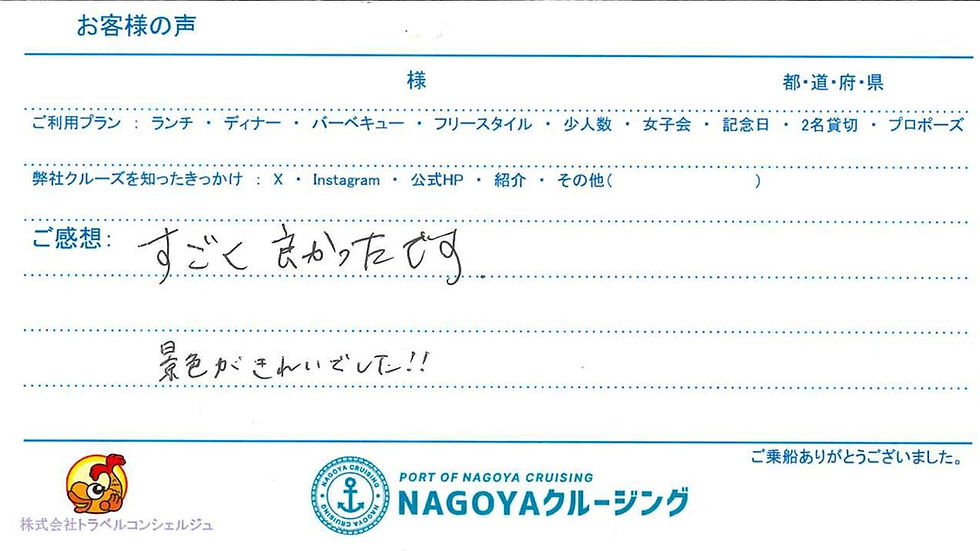 お客様の声
様 都・道・府・県
ご利用プラン : ランチ ・ ディナー ・ バーベキュー ・ フリースタイル ・ 少人数 ・ 女子会 ・ 記念日 ・ 2名貸切 ・ プロポーズ
弊社クルーズを知ったきっかけ : X ・ Instagram ・ 公式HP ・ 紹介 ・ その他( )
ご感想: すごく良かったです.
景色がきれいでした!!
ご乗船ありがとうございました。
NAGOYA CRUISING NAGOYA CRUISING
PORT OF NAGOYA CRUISING
NAGOYAクルージング
株式会社トラベルコンシェルジュ